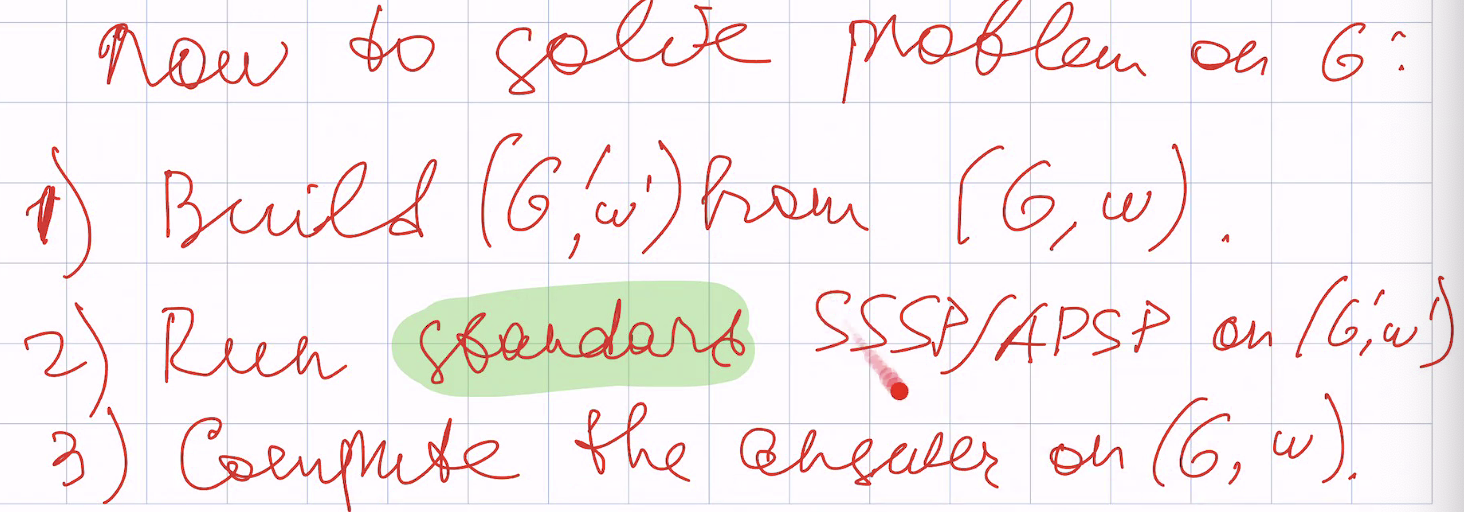 how to solve problem on G:
1) Build (G', w') from (G, w).
2) Run standard SSSP/APSP on (G', w')
3) Compute the answer on (G, w).